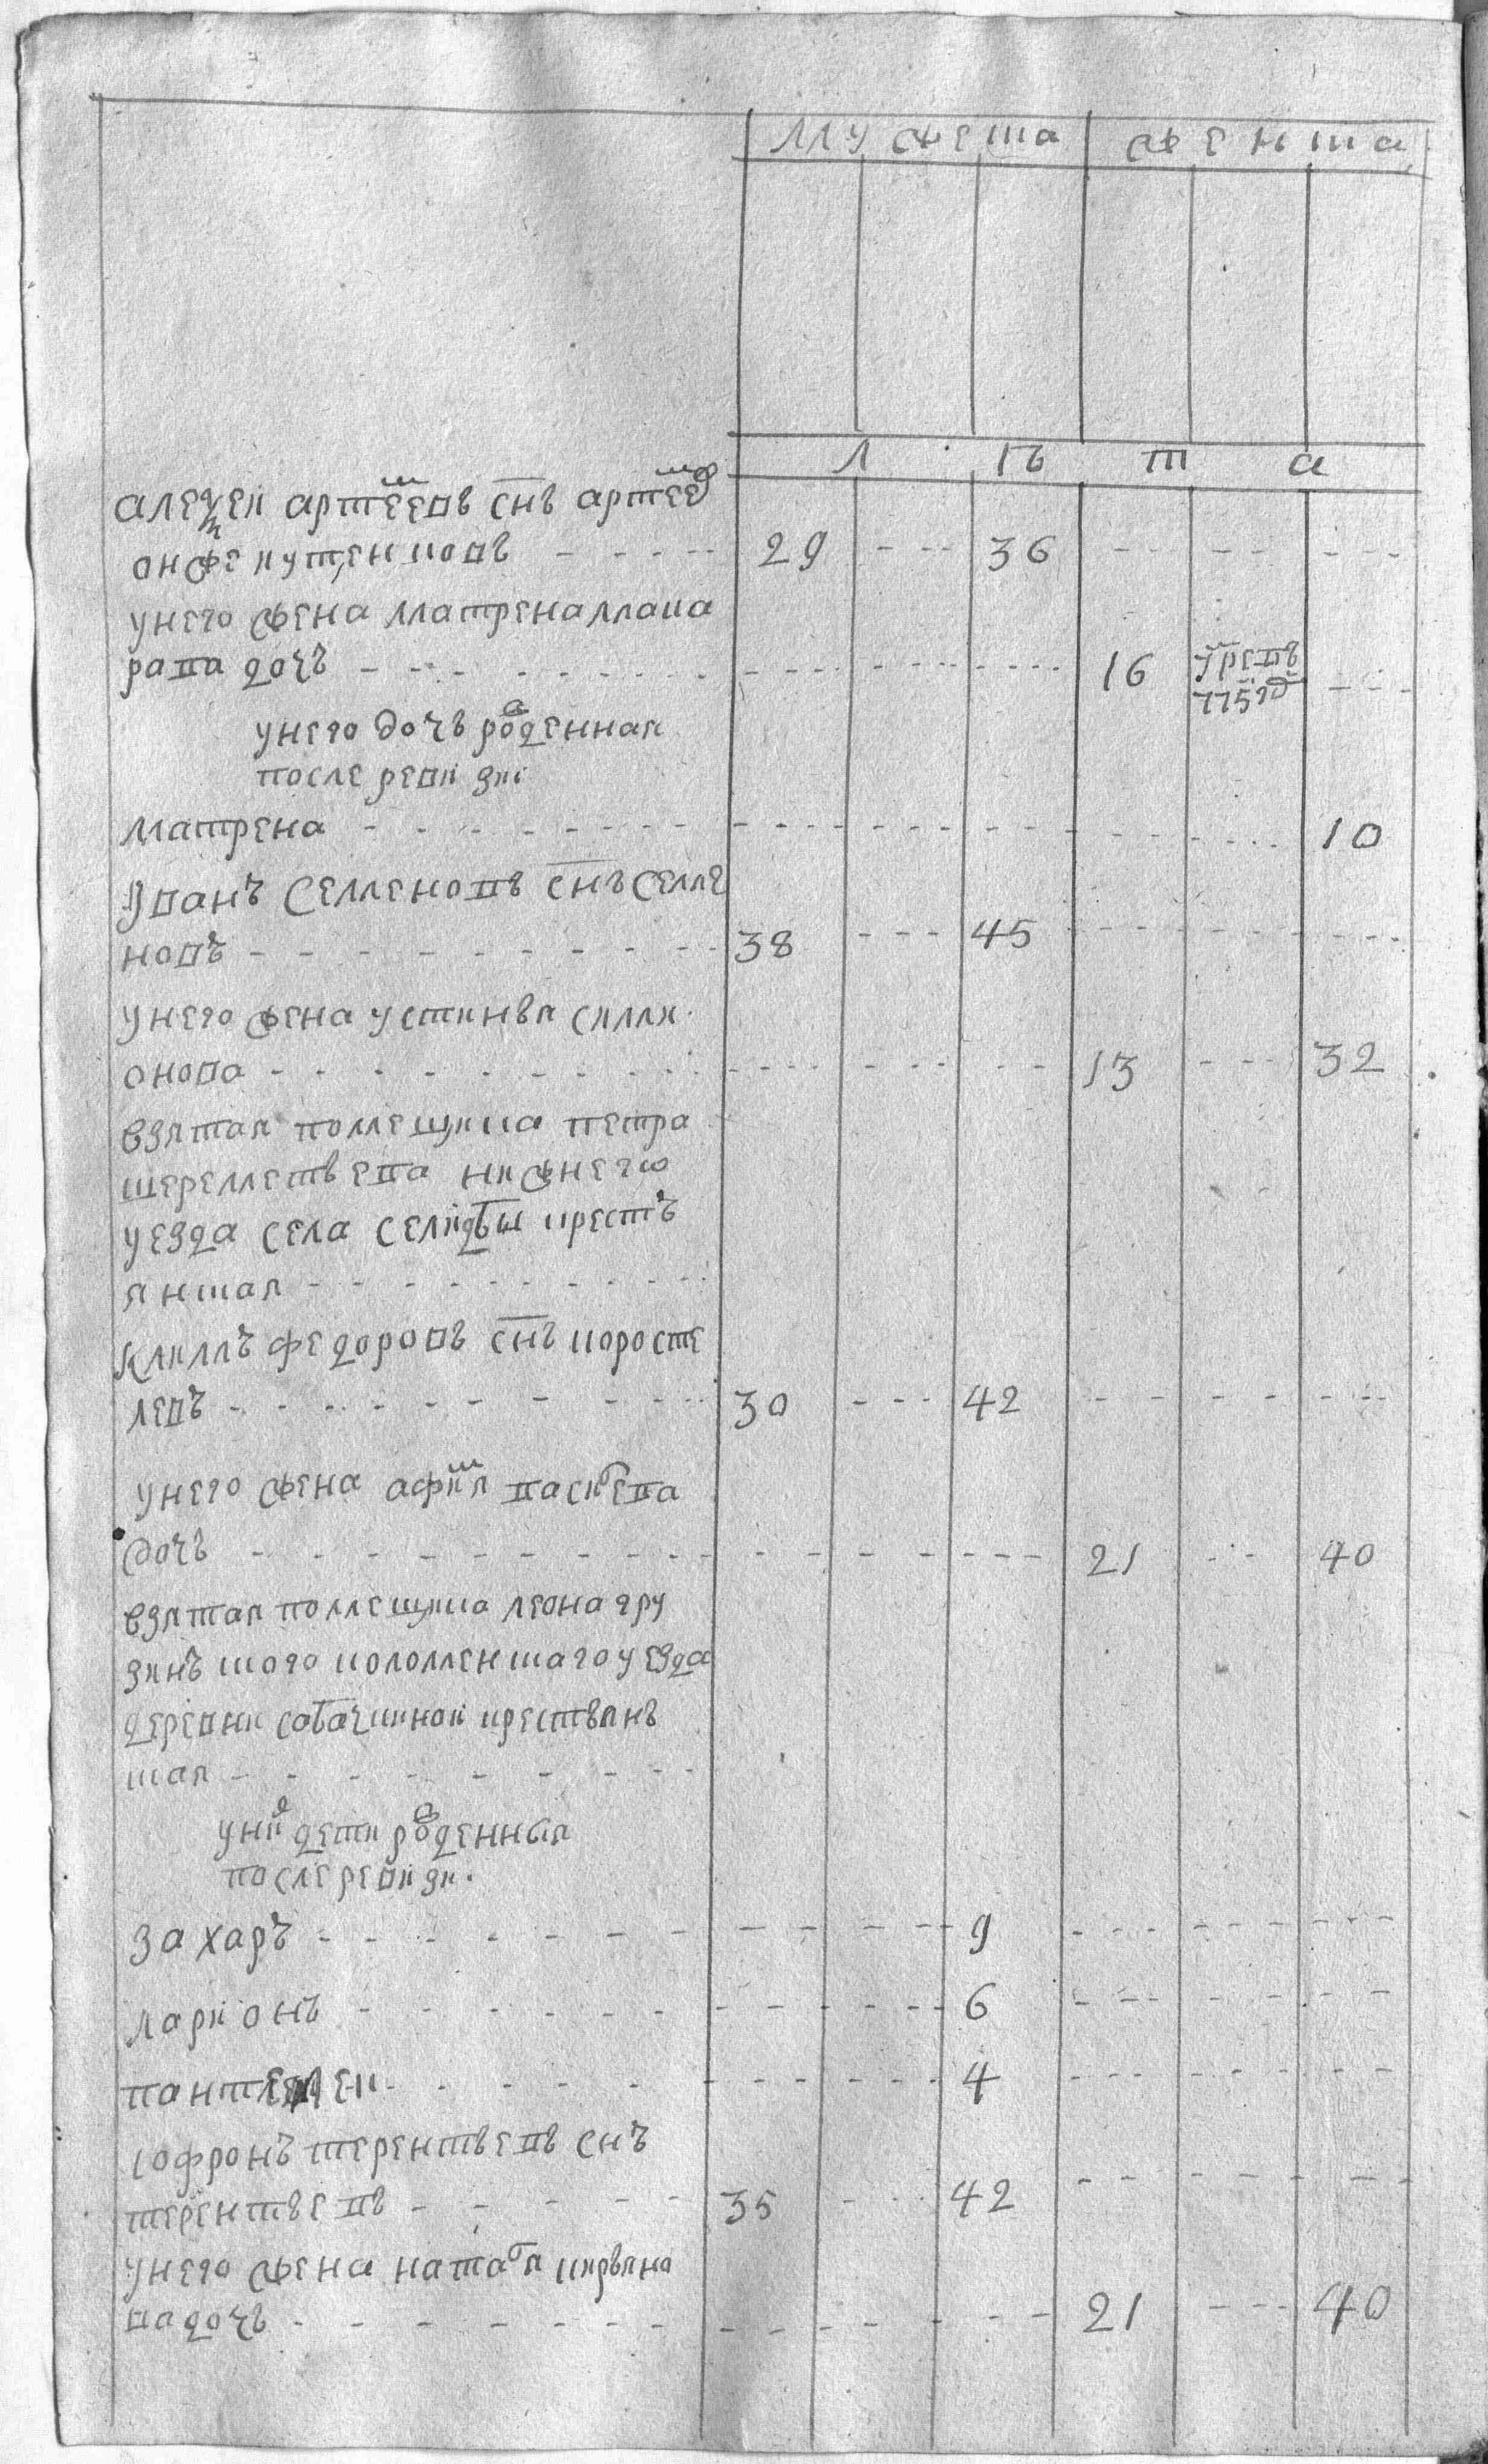 мужеска женска
л ѣ т а
алеѯеи артееовъ снъ артеев
онже кутенковъ - - - - - 29 - - - 36 - - - - - - - -
унего жена матрена мака
рава дочъ - - - - - - - - - - - - - - 16 умре въ - - -
775год
унего дочъ роженная
после ревизиi
матрена - - - - - - - - - - - - - - - - - - 10
Иванъ семеновъ снъ семе
новъ - - - - - - - - - 38 - - - 45 - - - - - - - - -
унего жена устинья сими
онова - - - - - - - - - - - - - - - - 13 - - - 32
взятая помещика петра
шереметьева нижнего
уезда села селидбы крестъ
янская - - - - - - - -
Климъ федоровъ снъ коросте
левъ - - - - - - - - 30 - - - 42 - - - - - - - -
унего жена афимя васильева
дочъ - - - - - - - - - - - - - - - - 21 - - 40
взятая помещика леона гру
зинъ скаго коломенскаго уезда
деревни собачкиной крестьянъ
ская - - - - - - - -
уних дети роженныя
после ревизи.
захаръ - - - - - - - - - - - - 9 - - - - - - - -
ларионъ - - - - - - - - - - - - 6 - - - - - - - -
пантелеи - - - - - - - - - - - 4 - - - - - - - -
софронъ терентьевъ снъ
терентьевъ - - - - - - 35 - - - 42 - - - - - - - -
унего жена наталя кирьяно
ва дочъ - - - - - - - - - - - - - - - 21 - - - 40